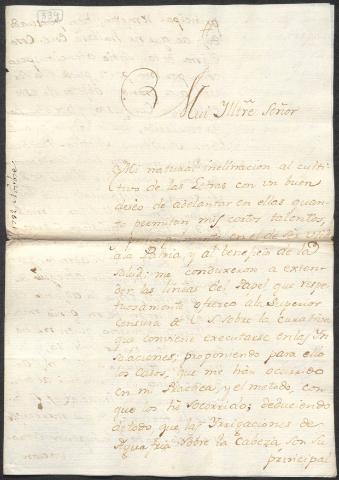 339
Mui Yltre Señor
Mi natural inclinacion al culti-
tivo de las Letras con un buen
deseo de adelantar en ellas quan-
to permitan mis cortos talentos,
en el de ser util
a la Patria, y al beneficio de la
salud; me conduxeron a exten-
der las lineas del Papel que respe-
tuosamente ofresco a la Superior
Censura de V. S. sobre la curativa
que conviene executarse en las Yn
solaciones; proponiendo para ello
los casos, que me han ocurrido
en mi Practica, y el metodo, con
que los he socorrido; deduciendo
de todo que las Yrrigaciones de
Agua fria sobre la Cabeza son su
principal